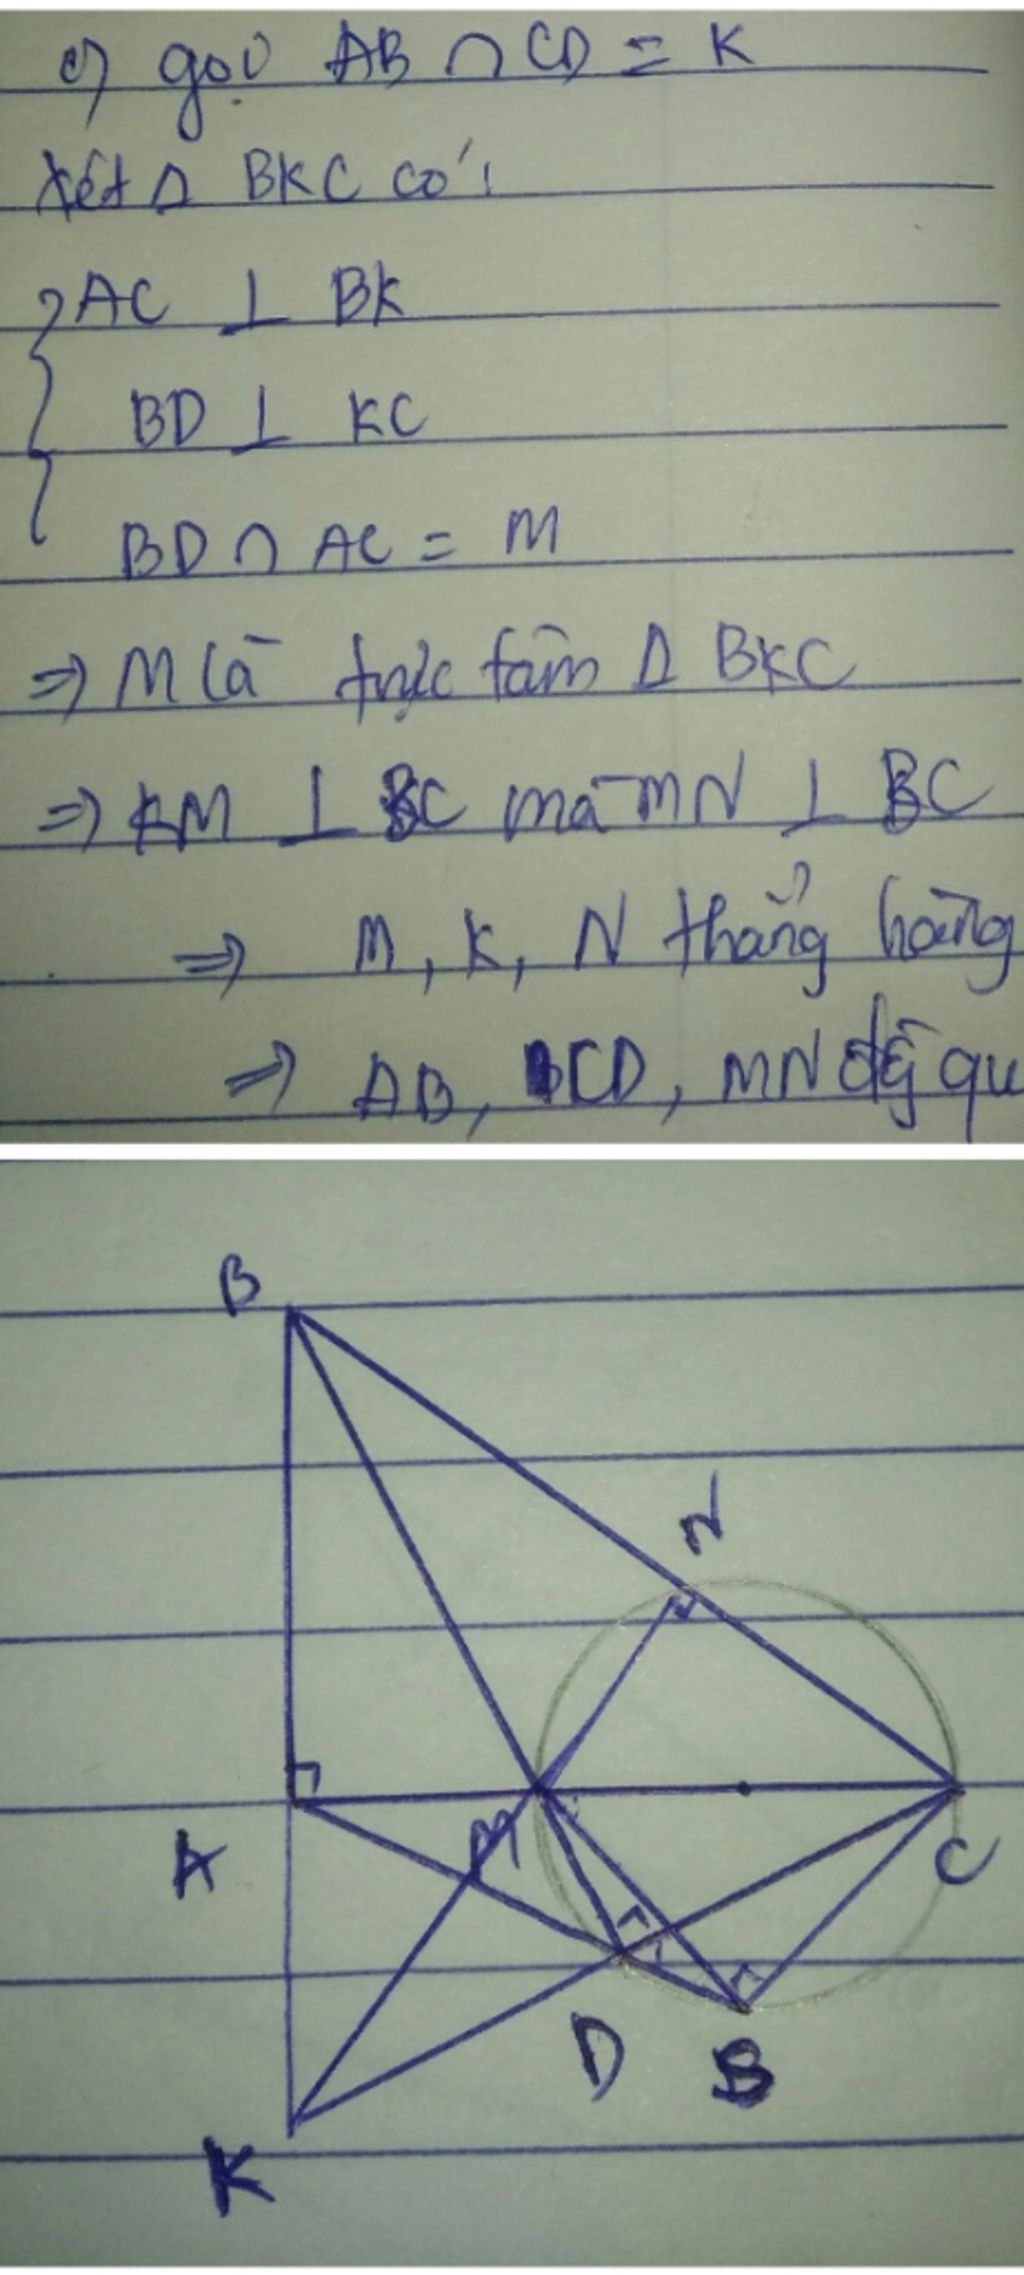 c) gọi AB ∩ CD = K
Xét Δ BKC có:
AC ⊥ BK
BD ⊥ KC
BD ∩ AC = M
=> M là trực tâm Δ BKC
=> KM ⊥ BC mà MN ⊥ BC
=> M, K, N thẳng hàng
=> AB, CD, MN đg qu
B
N
A
M
C
D
S
K